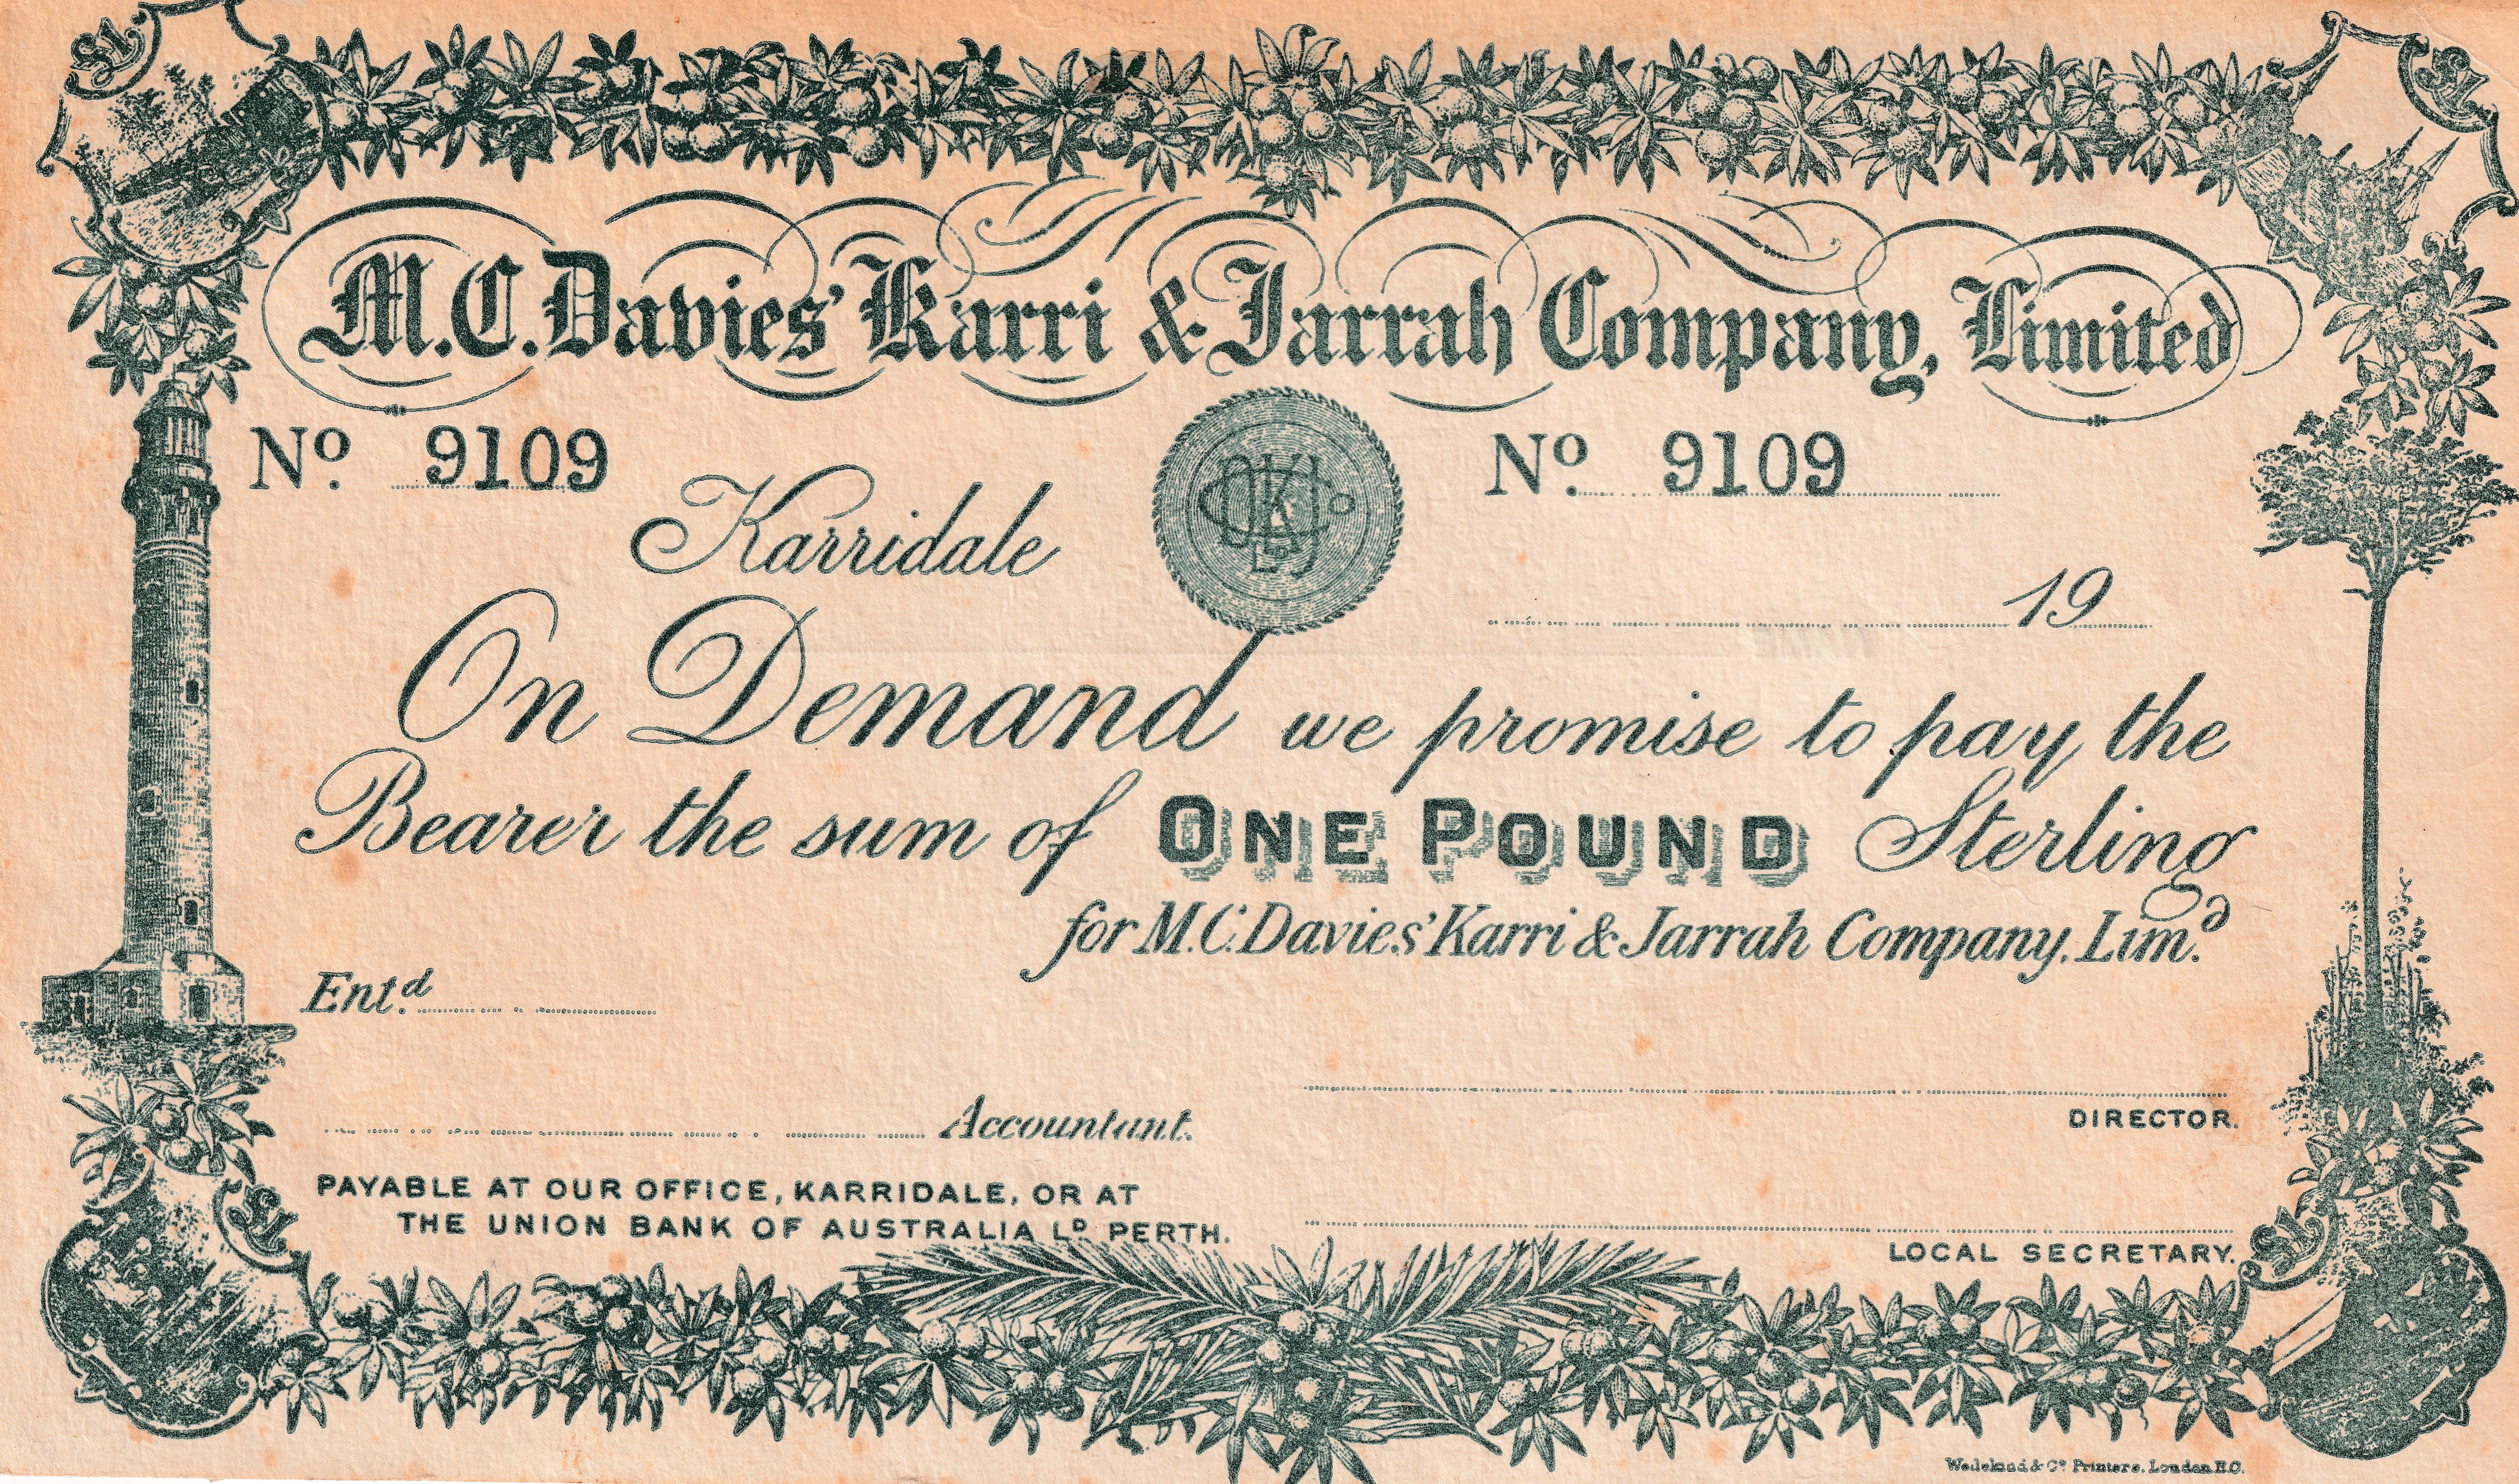 £1 £1
M.C. Davies' Karri & Jarrah Company, Limited
No. 9109 No. 9109
Karridale
19
On Demand we promise to pay the
Bearer the sum of ONE POUND Sterling
for M.C. Davies' Karri & Jarrah Company, Lim.d
Ent.d
Accountant.
DIRECTOR.
PAYABLE AT OUR OFFICE, KARRIDALE, OR AT
THE UNION BANK OF AUSTRALIA LD. PERTH.
LOCAL SECRETARY.
£1 £1
& Co. Printers, London E.C.